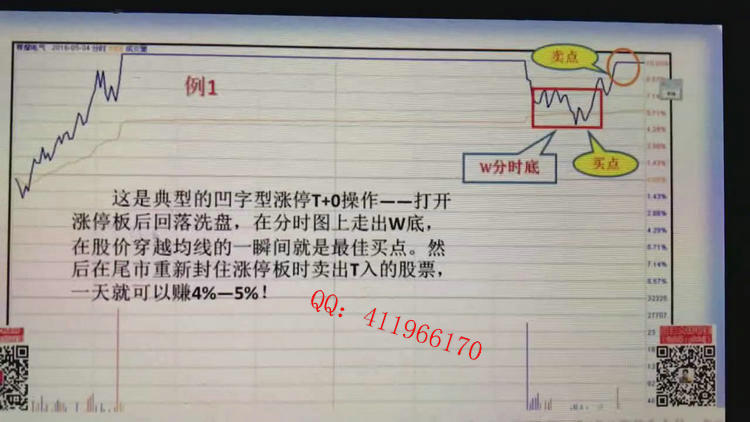 2016-05-04 分时 成交量
例1
卖点
10.00%
8.57%
7.14%
5.71%
4.28%
2.86%
1.43%
W分时底
买点
1.43%
2.86%
4.28%
5.71%
7.14%
8.57%
这是典型的凹字型涨停T+0操作——打开
涨停板后回落洗盘，在分时图上走出W底，
在股价穿越均线的一瞬间就是最佳买点。然
后在尾市重新封住涨停板时卖出T入的股票，
一天就可以赚4%—5%！
QQ：411966170
32226
27707